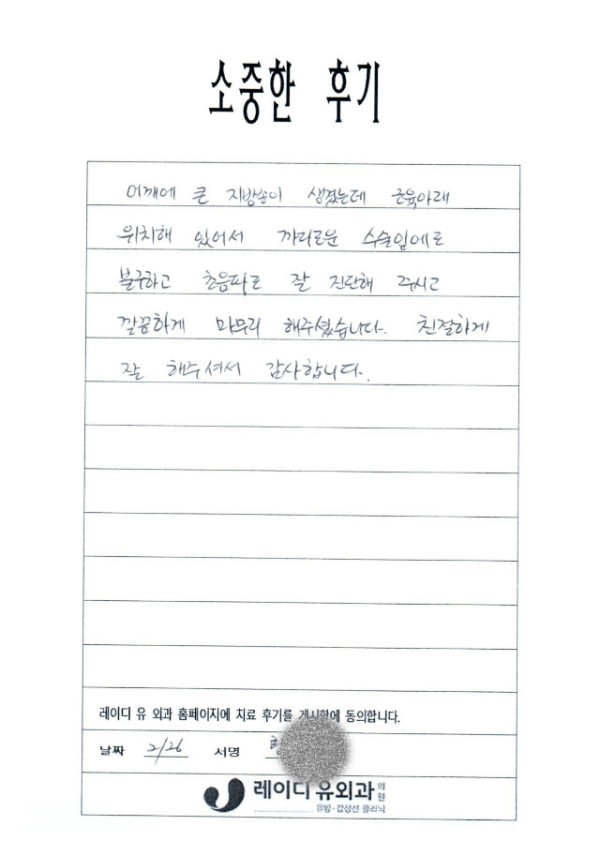 소중한 후기
어깨에 큰 지방종이 생겼는데 근육아래
위치해 있어서 까다로운 수술임에도
불구하고 초음파로 잘 진단해 주시고
깔끔하게 마무리 해주셨습니다. 친절하게
잘 해주셔서 감사합니다.
레이디 유 외과 홈페이지에 치료 후기를 게시함에 동의합니다.
날짜 2/26 서명
레이디유외과의원
유방·갑상선 클리닉